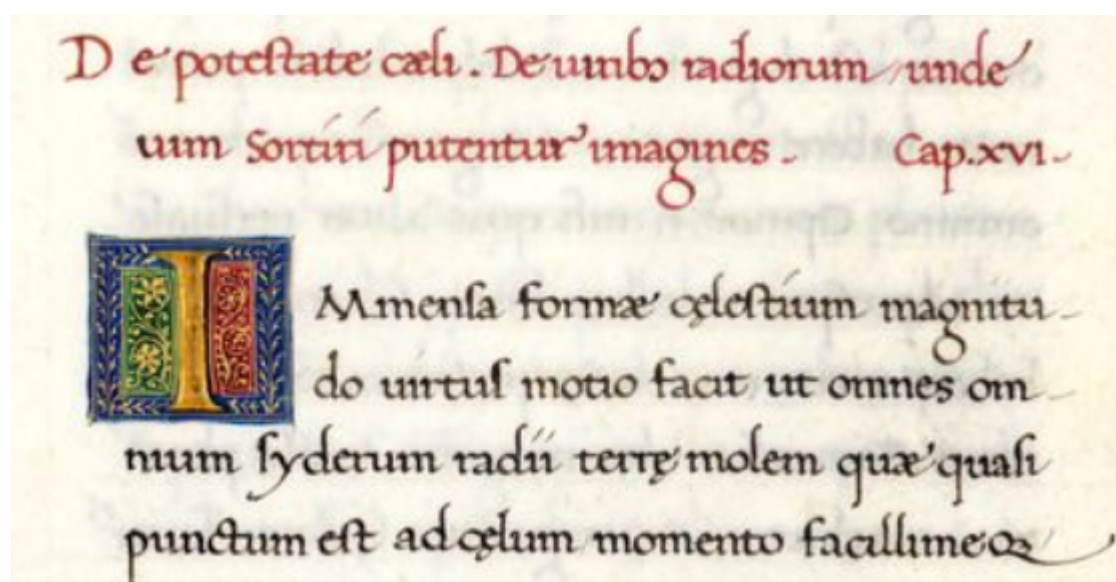 De potestate cæli. De uiribꝫ radiorum unde
uim Sortiri putentur imagines. Cap.xvi.
IMmensa formæ cęlestium magnitu
do uirtus motio facit ut omnes om
nium syderum radii terrę molem quæ quasi
punctum est ad cęlum momento facillimeqꝫ